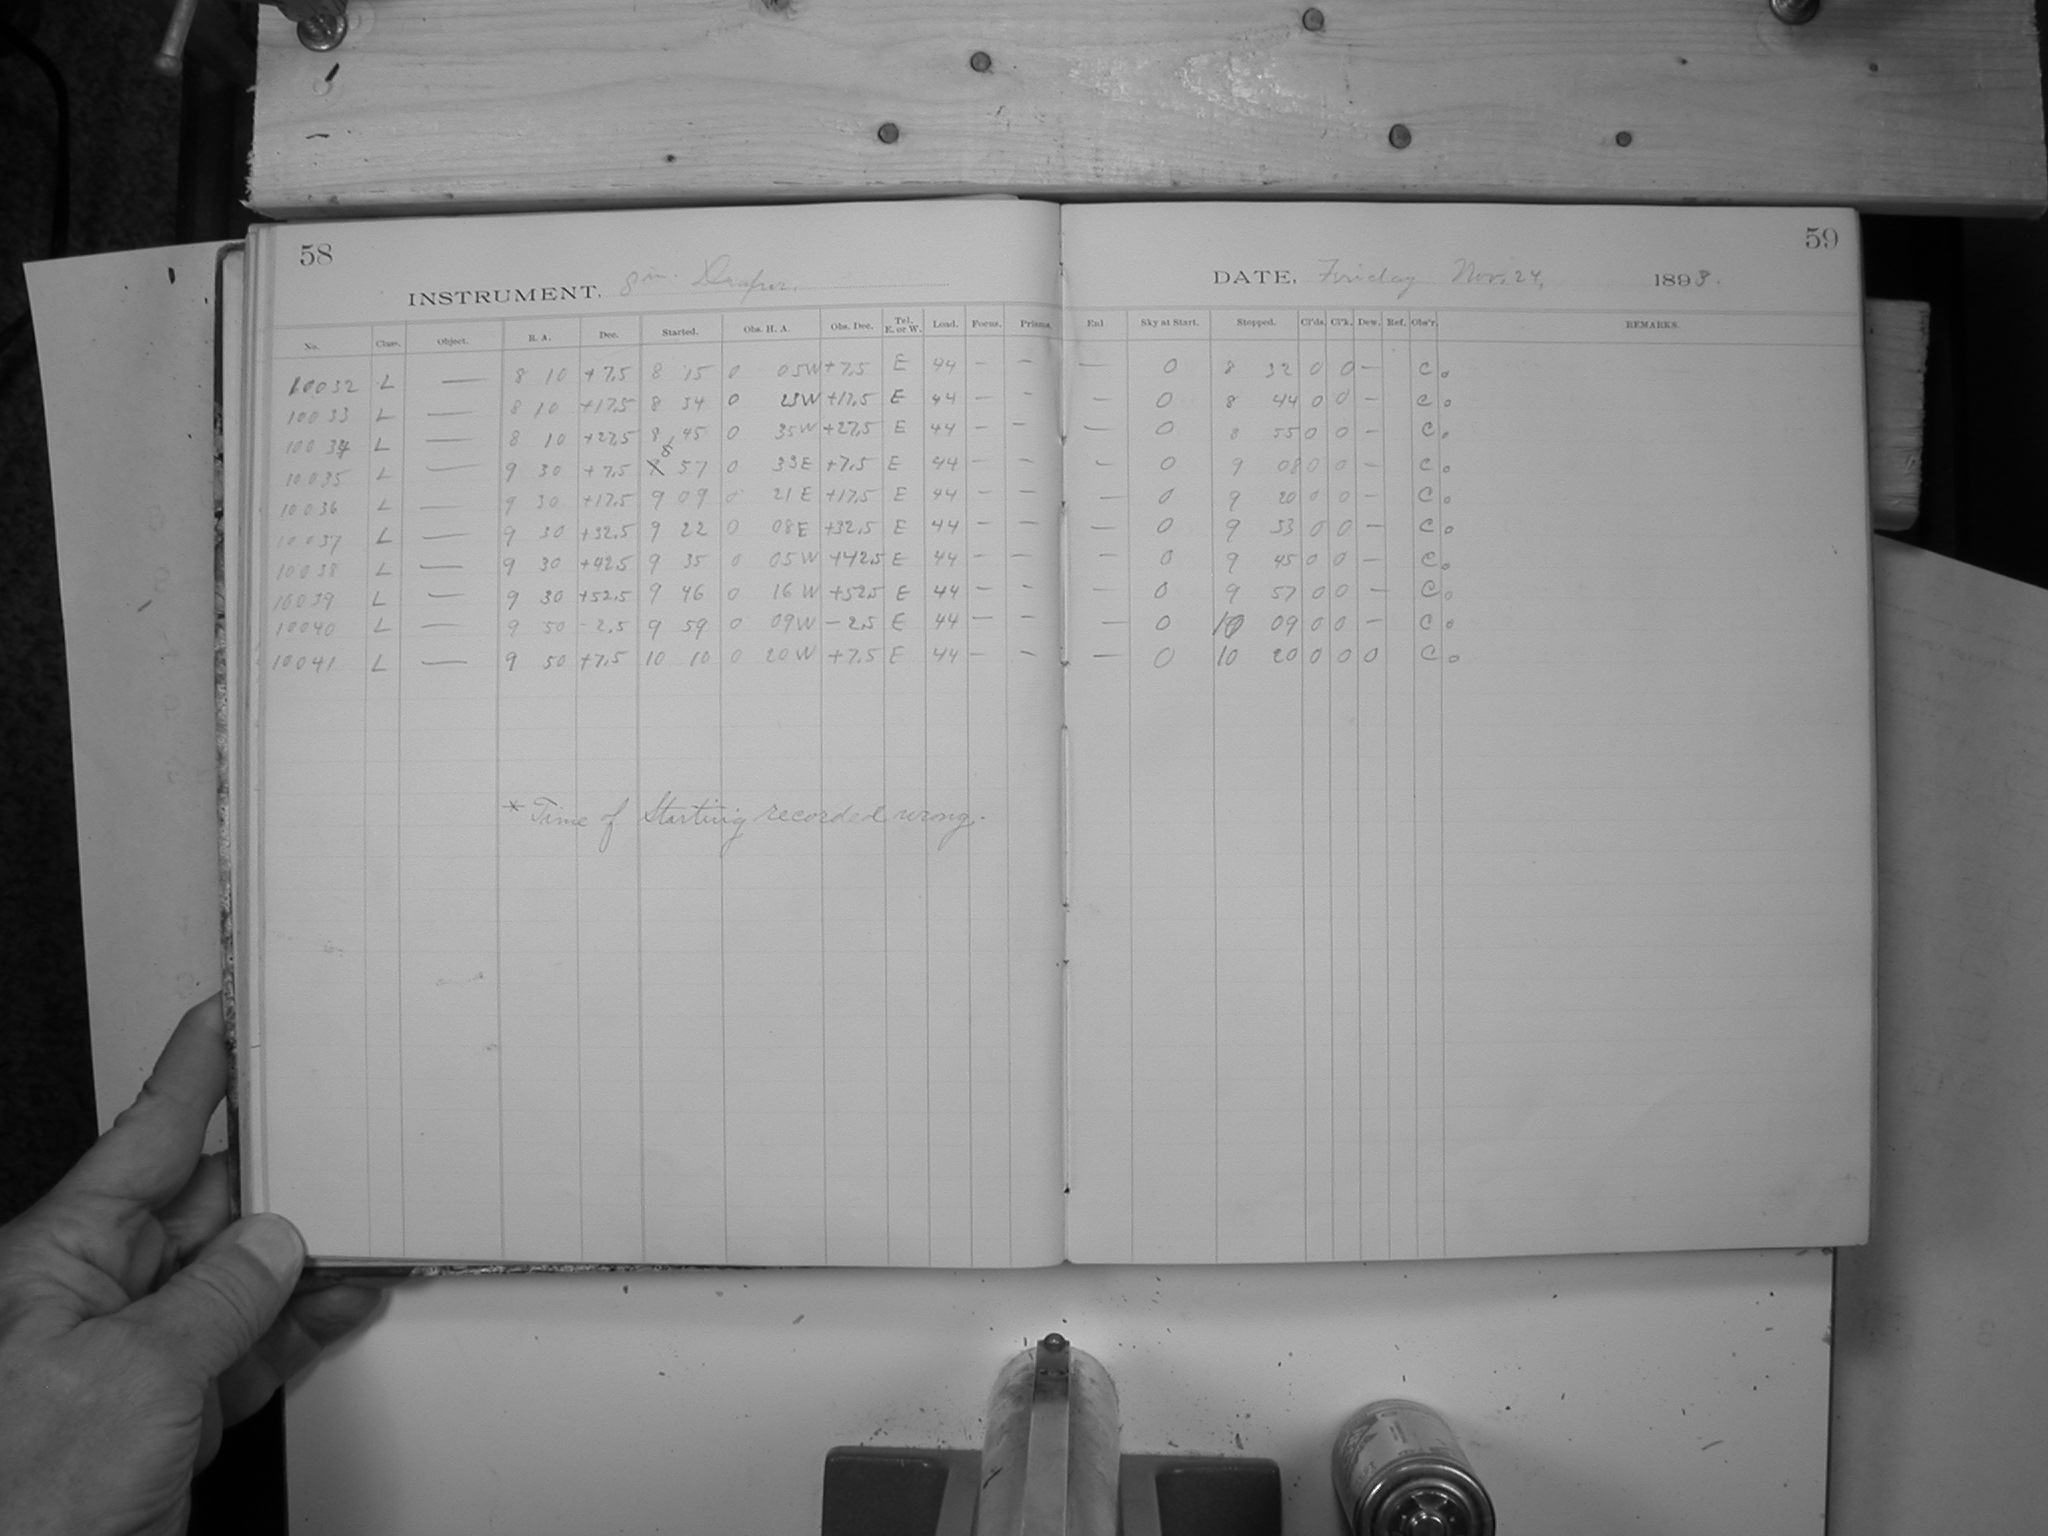 58
INSTRUMENT. 8 in. Draper.
No. Class. Object. R. A. Dec. Started. Obs. H. A. Obs. Dec. Tel. E. or W. Load. Focus. Prisms.
10032 L — 8 10 +7.5 8 15 0 05W +7.5 E 44 — —
10033 L — 8 10 +17.5 8 34 0 23W +17.5 E 44 — -
10034 L — 8 10 +27.5 8 45 0 35W +27.5 E 44 — —
10035 L — 9 30 +7.5 8 57 0 33E +7.5 E 44 — —
10036 L — 9 30 +17.5 9 09 0 21E +17.5 E 44 — —
10037 L — 9 30 +32.5 9 22 0 08E +32.5 E 44 — —
10038 L — 9 30 +42.5 9 35 0 05W +42.5 E 44 — —
10039 L — 9 30 +52.5 9 46 0 16W +52.5 E 44 — —
10040 L — 9 50 -2.5 9 59 0 09W -2.5 E 44 — —
10041 L — 9 50 +7.5 10 10 0 20W +7.5 E 44 — —
* Time of Starting recorded wrong.
59
DATE, Friday Nov. 24, 1893.
Enl Sky at Start. Stopped. Cl'ds. Cl'k. Dew. Ref. Obs'r. REMARKS.
— 0 8 32 0 0 — C.
— 0 8 44 0 0 - C.
— 0 8 55 0 0 - C.
— 0 9 08 0 0 - C.
— 0 9 20 0 0 - C.
— 0 9 33 0 0 — C.
— 0 9 45 0 0 — C.
— 0 9 57 0 0 — C.
— 0 10 09 0 0 - C.
— 0 10 20 0 0 0 C.